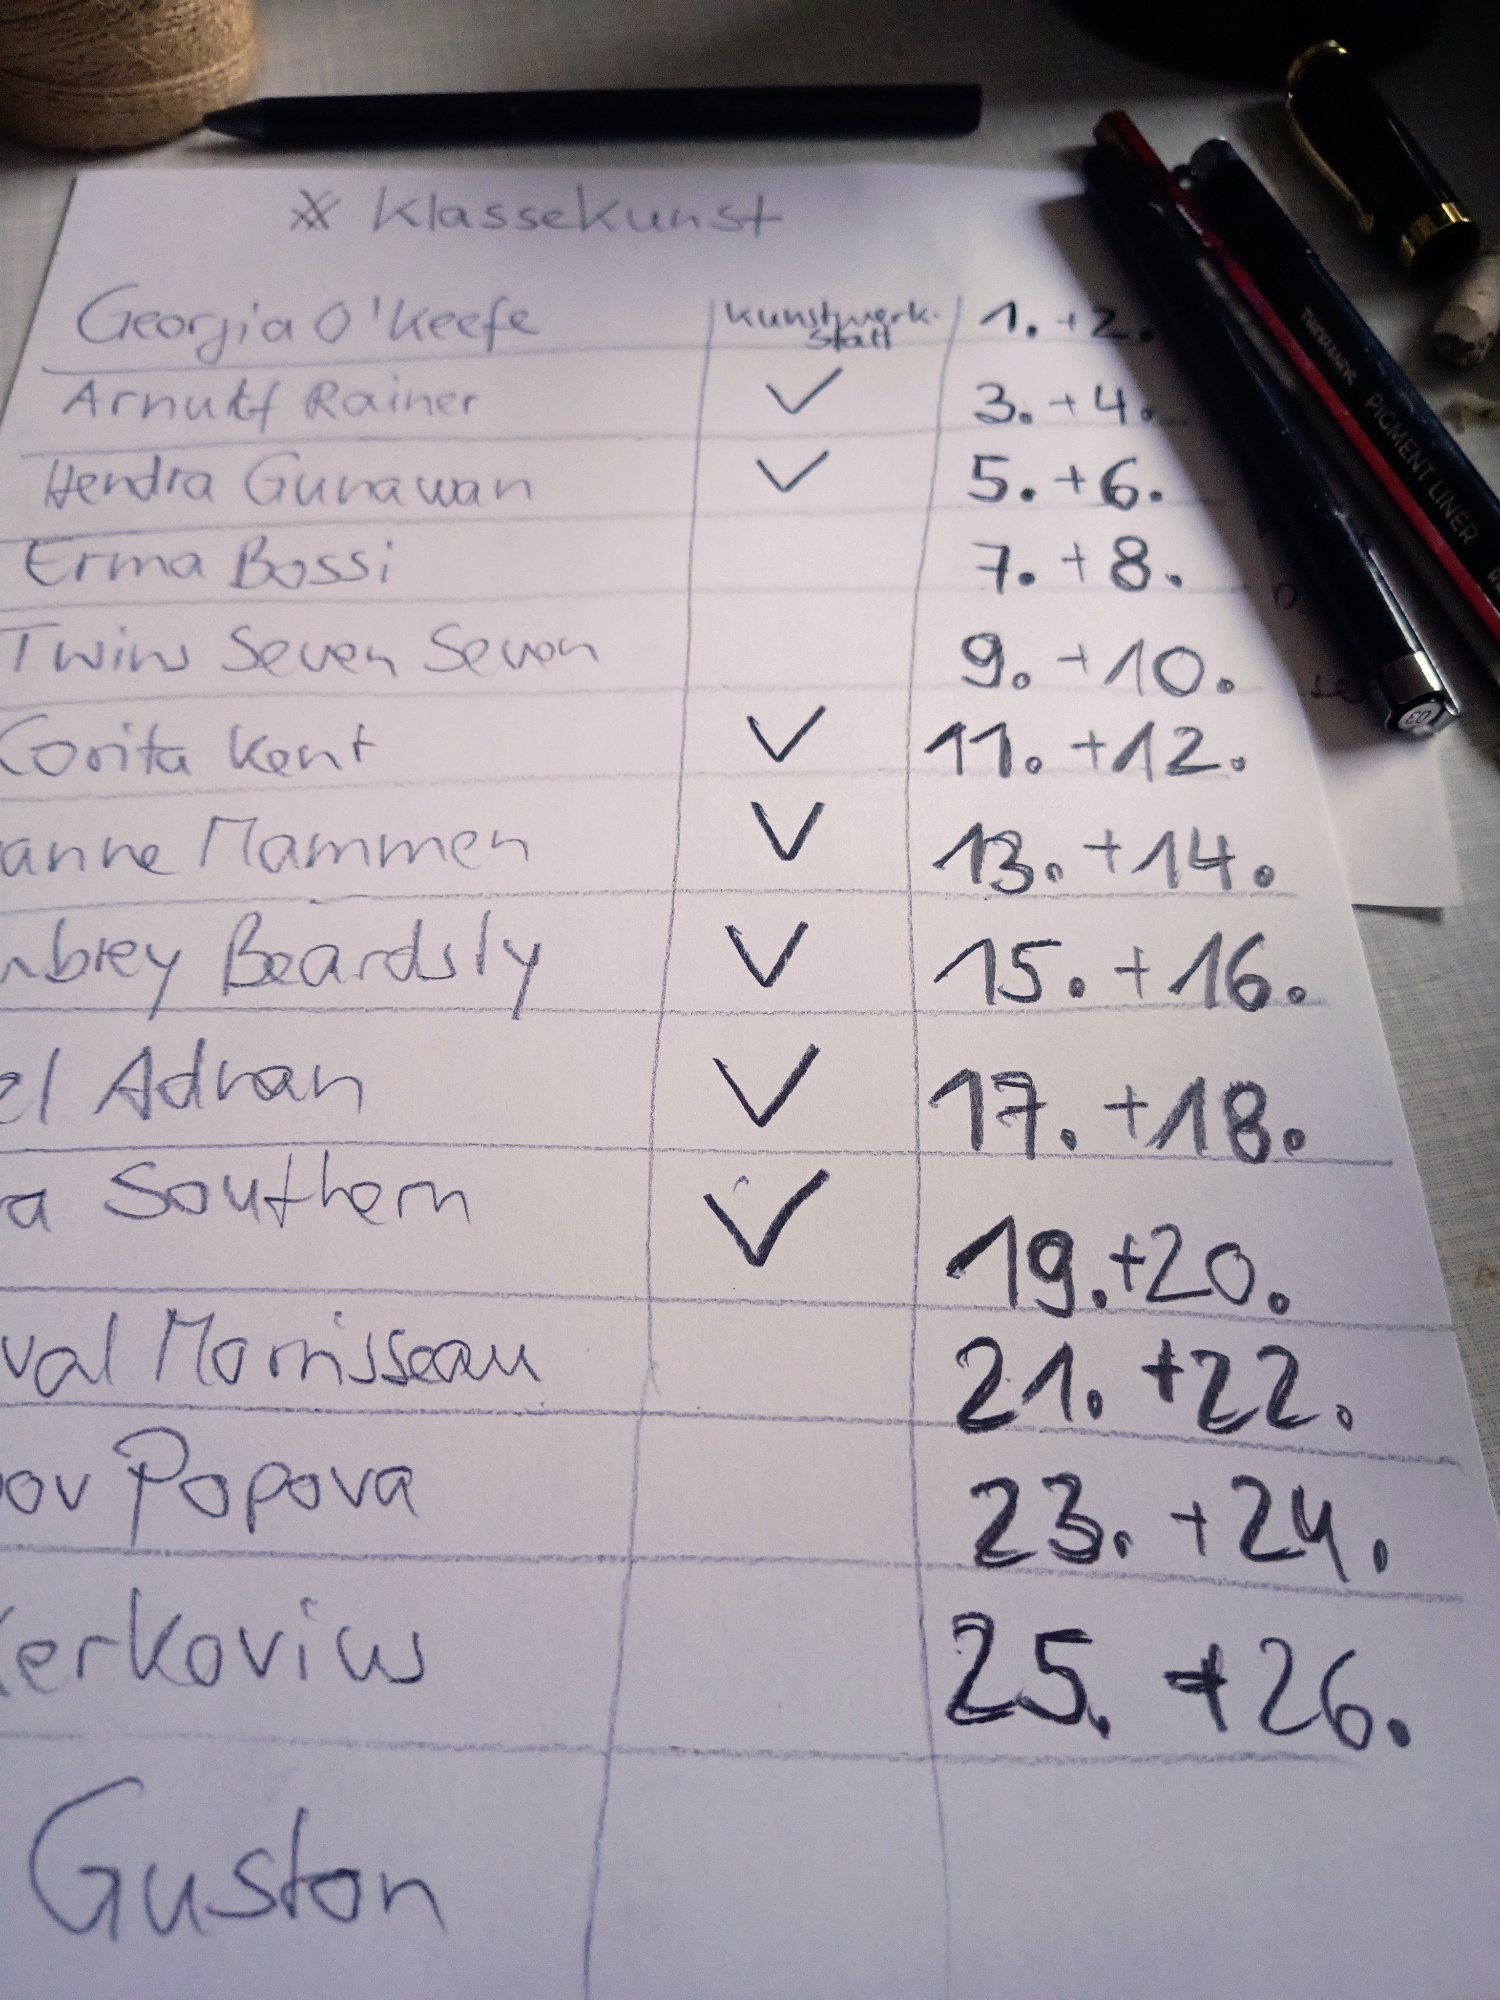 Klassekunst
Georgia O'Keefe Kunstwerk-
statt 1. + 2.
Arnulf Rainer ✓ 3. + 4.
Hendra Gunawan ✓ 5. + 6.
Erma Bossi 7. + 8.
Twins Seven Seven 9. + 10.
Corita Kent ✓ 11. + 12.
anne Mammen ✓ 13. + 14.
ubrey Beardsly ✓ 15. + 16.
el Adnan ✓ 17. + 18.
a Southern ✓ 19. + 20.
val Morrisseau 21. + 22.
ov Popova 23. + 24.
Kerkovius 25. + 26.
Guston
PIGMENT LINER
03